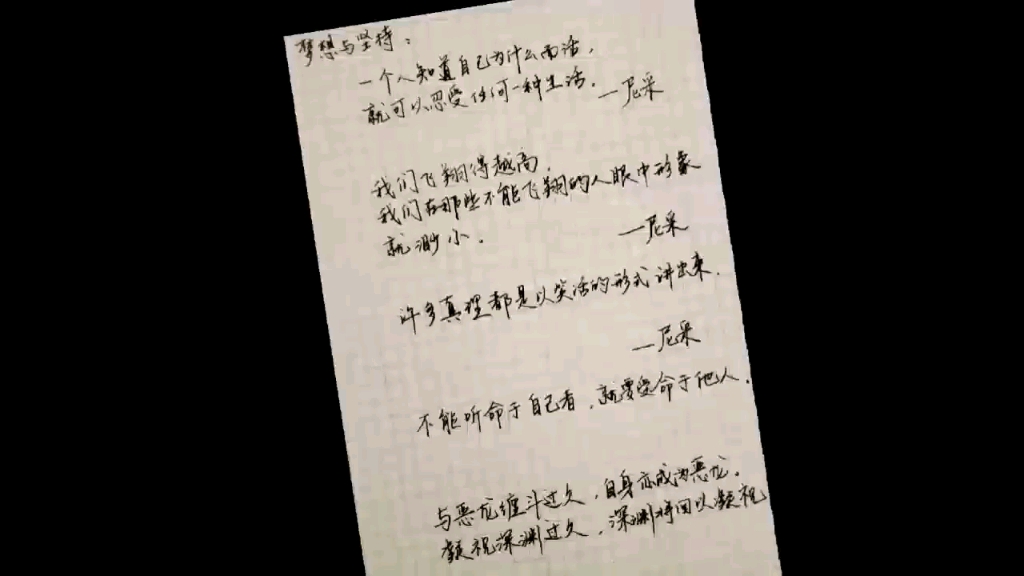 梦想与坚持：
一个人知道自己为什么而活，
就可以忍受任何一种生活。
—尼采
我们飞翔得越高，
我们在那些不能飞翔的人眼中形象
就渺小。
—尼采
许多真理都是以笑话的形式讲出来．
—尼采
不能听命于自己者，就要受命于他人．
与恶龙缠斗过久，自身亦成为恶龙．
凝视深渊过久，深渊将回以凝视